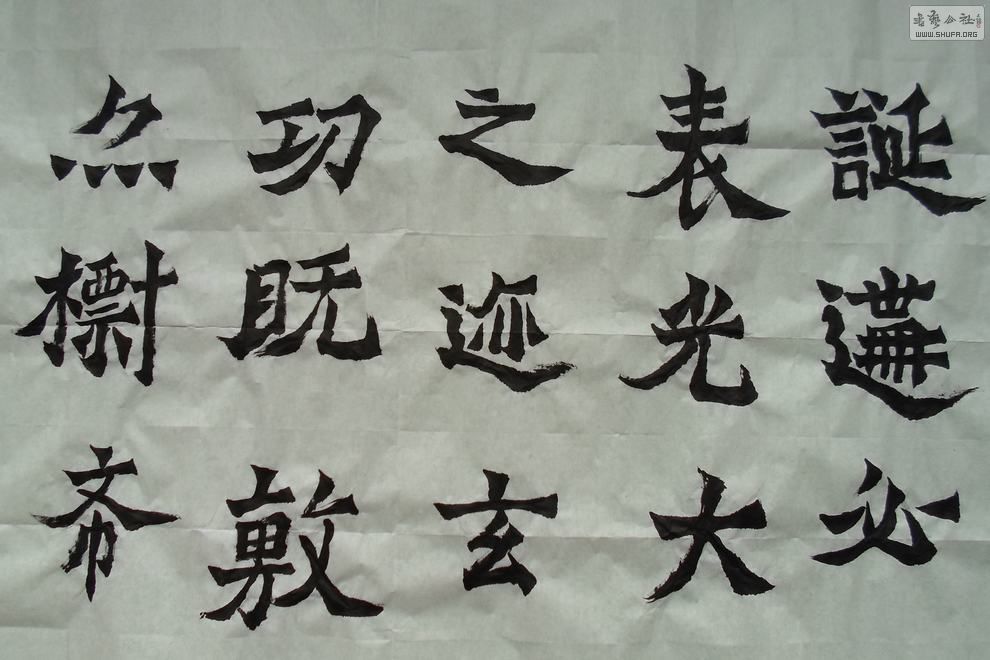 誕遘必
表光大
之迹玄
功既敷
亦標希
書藝公社
WWW.SHUFA.ORG